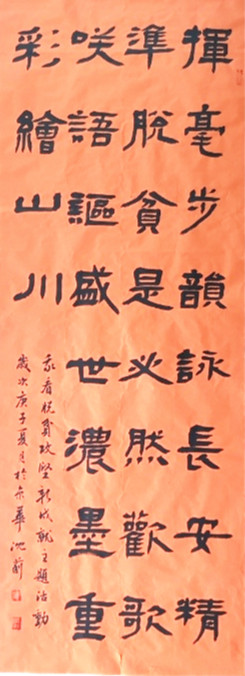 揮毫步韻詠長安精
準脫貧是必然歡歌
咲語謳盛世濃墨重
彩繪山川
我看脫貧攻堅新成就主題活動
歲次庚子夏月於京華沈